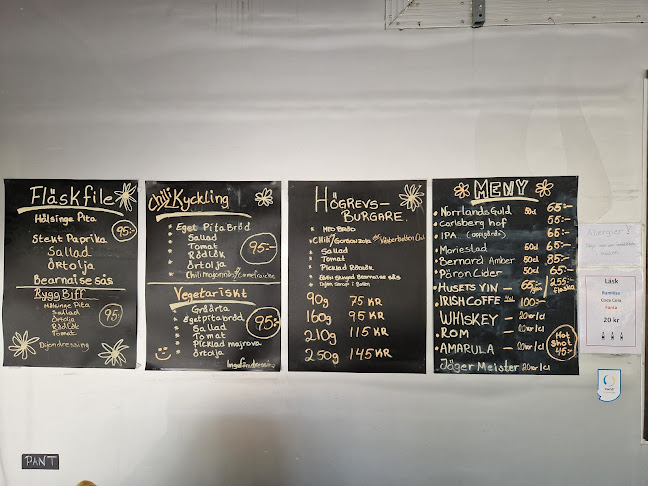 Fläskfile
Hälsinge Pita
95:-
Stekt Paprika
Sallad
Örtolja
Bearnaise Sås
Rygg Biff
Hälsinge Pita
Sallad
Örtolja
Rödlök
Tomat
95:-
Dijondressing
Chili Kyckling
Eget Pita Bröd
Sallad
Tomat
Rödlök
Örtolja
95:-
Vegetariskt
Eget pita bröd
Sallad
Tomat
Picklad
Örtolja
95:-
HÖGREVS-
BURGARE.
Sallad
Tomat
Picklad Rödlök
90g 75 KR
160g 95 KR
210g 115 KR
250g 145 KR
MENY
Norrlands Guld 50cl 65:-
Carlsberg hof 55:-
IPA 65:-
Mariestad 50cl 65:-
Bernard Amber 50cl 85:-
Päron Cider 50cl 65:-
HUSETS VIN
IRISH COFFE 100:-
WHISKEY 20kr/cl
ROM 20kr/cl
AMARULA 20kr/cl
Jäger Meister 20kr/cl
Hot
Shot
45:-
Allergier?
Läsk
Ramlösa
Coca Cola
Fanta
20 kr
PANT